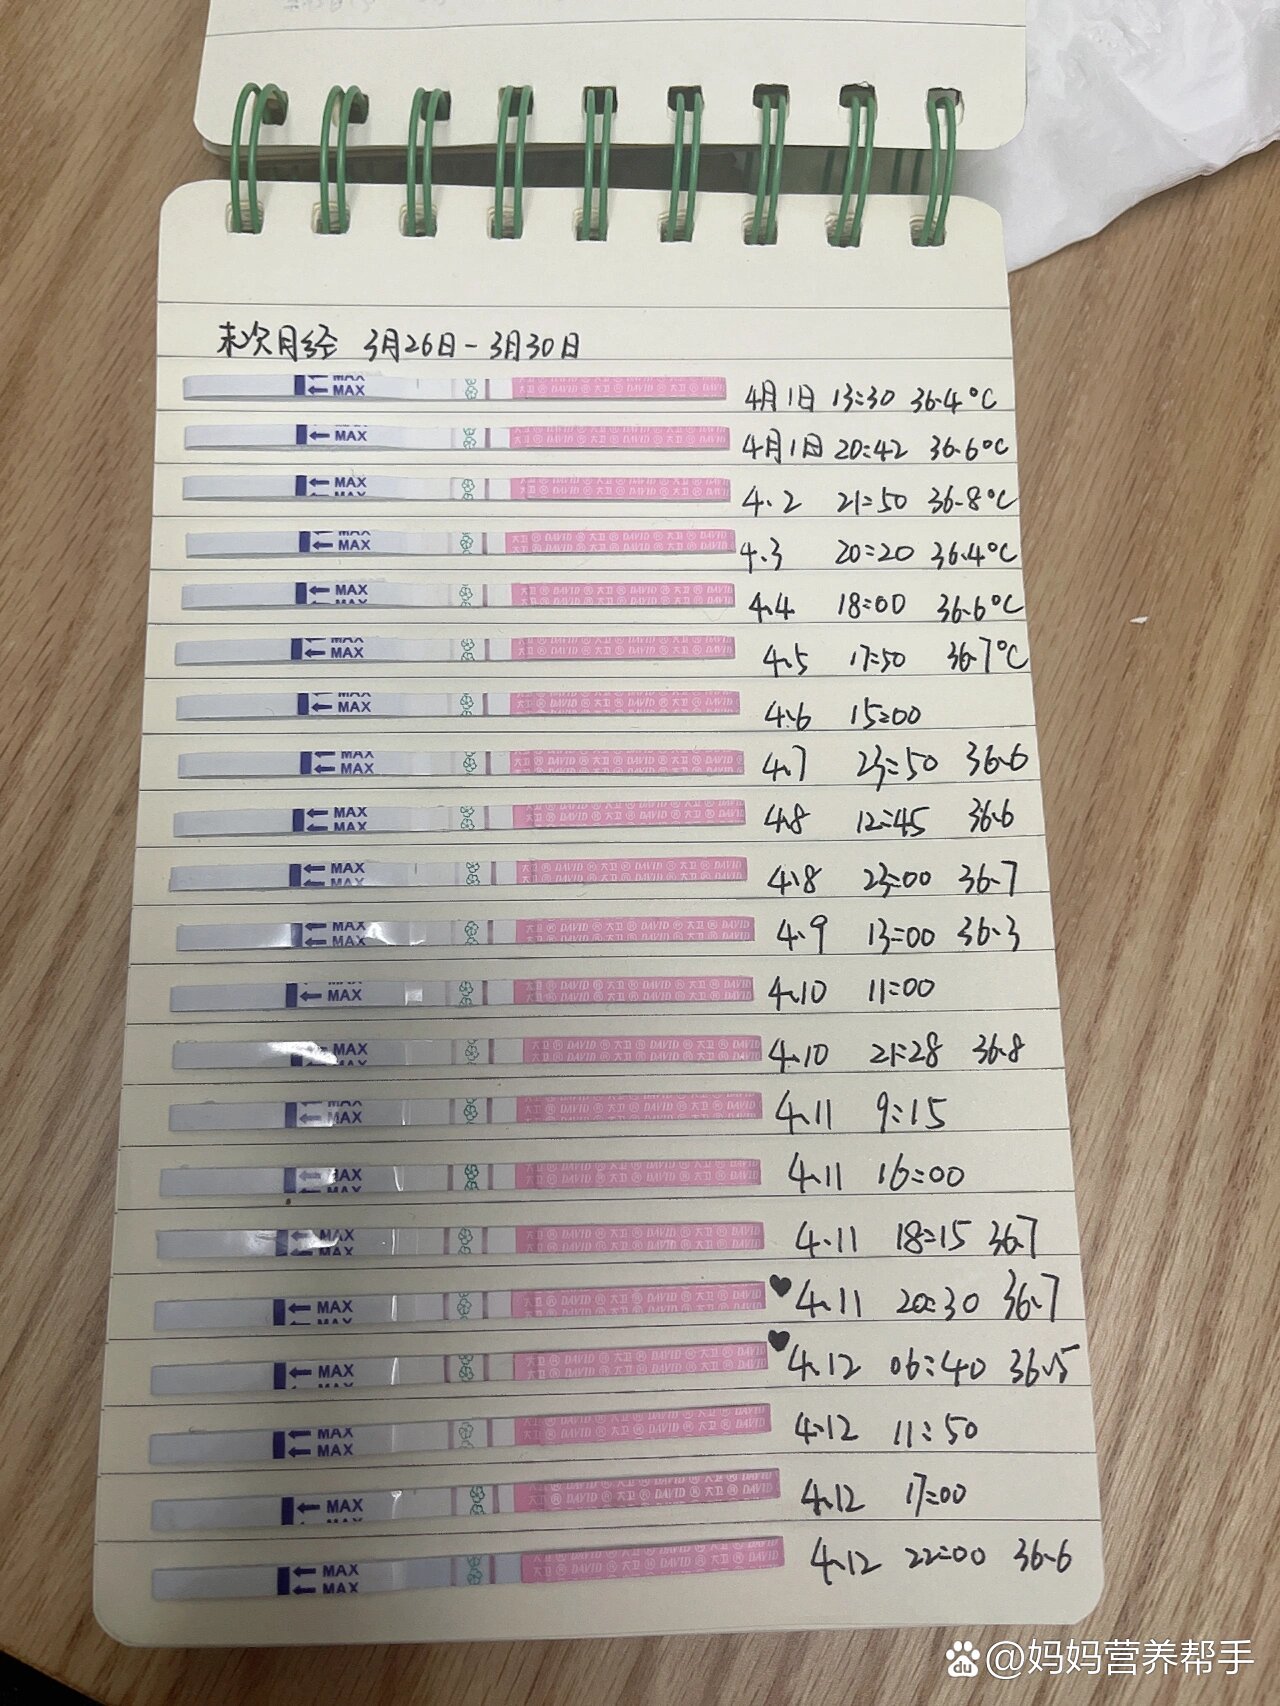 末次月经 3月26日-3月30日
MAX MAX 大卫 DAVID 4月1日 13:30 36.4°C
MAX 大卫 DAVID 4月1日 20:42 36.6°C
MAX 大卫 DAVID 4.2 21:50 36.8°C
MAX MAX 大卫 DAVID 4.3 20:20 36.4°C
MAX MAX 大卫 DAVID 4.4 18:00 36.6°C
MAX MAX 大卫 DAVID 4.5 17:50 36.7°C
MAX MAX 大卫 DAVID 4.6 15:00
MAX MAX 大卫 DAVID 4.7 23:50 36.6
MAX MAX 大卫 DAVID 4.8 12:45 36.6
MAX MAX 大卫 DAVID 4.8 23:00 36.7
MAX MAX 大卫 DAVID 4.9 13:00 36.3
MAX MAX 大卫 DAVID 4.10 11:00
MAX MAX 大卫 DAVID 4.10 21:28 36.8
MAX MAX 大卫 DAVID 4.11 9:15
MAX MAX 大卫 DAVID 4.11 16:00
MAX MAX 大卫 DAVID 4.11 18:15 36.7
MAX MAX 大卫 DAVID ♥4.11 20:30 36.7
MAX MAX 大卫 DAVID ♥4.12 06:40 36.5
MAX MAX 大卫 DAVID 4.12 11:50
MAX MAX 大卫 DAVID 4.12 17:00
MAX MAX 大卫 DAVID 4.12 22:00 36.6
du @妈妈营养帮手